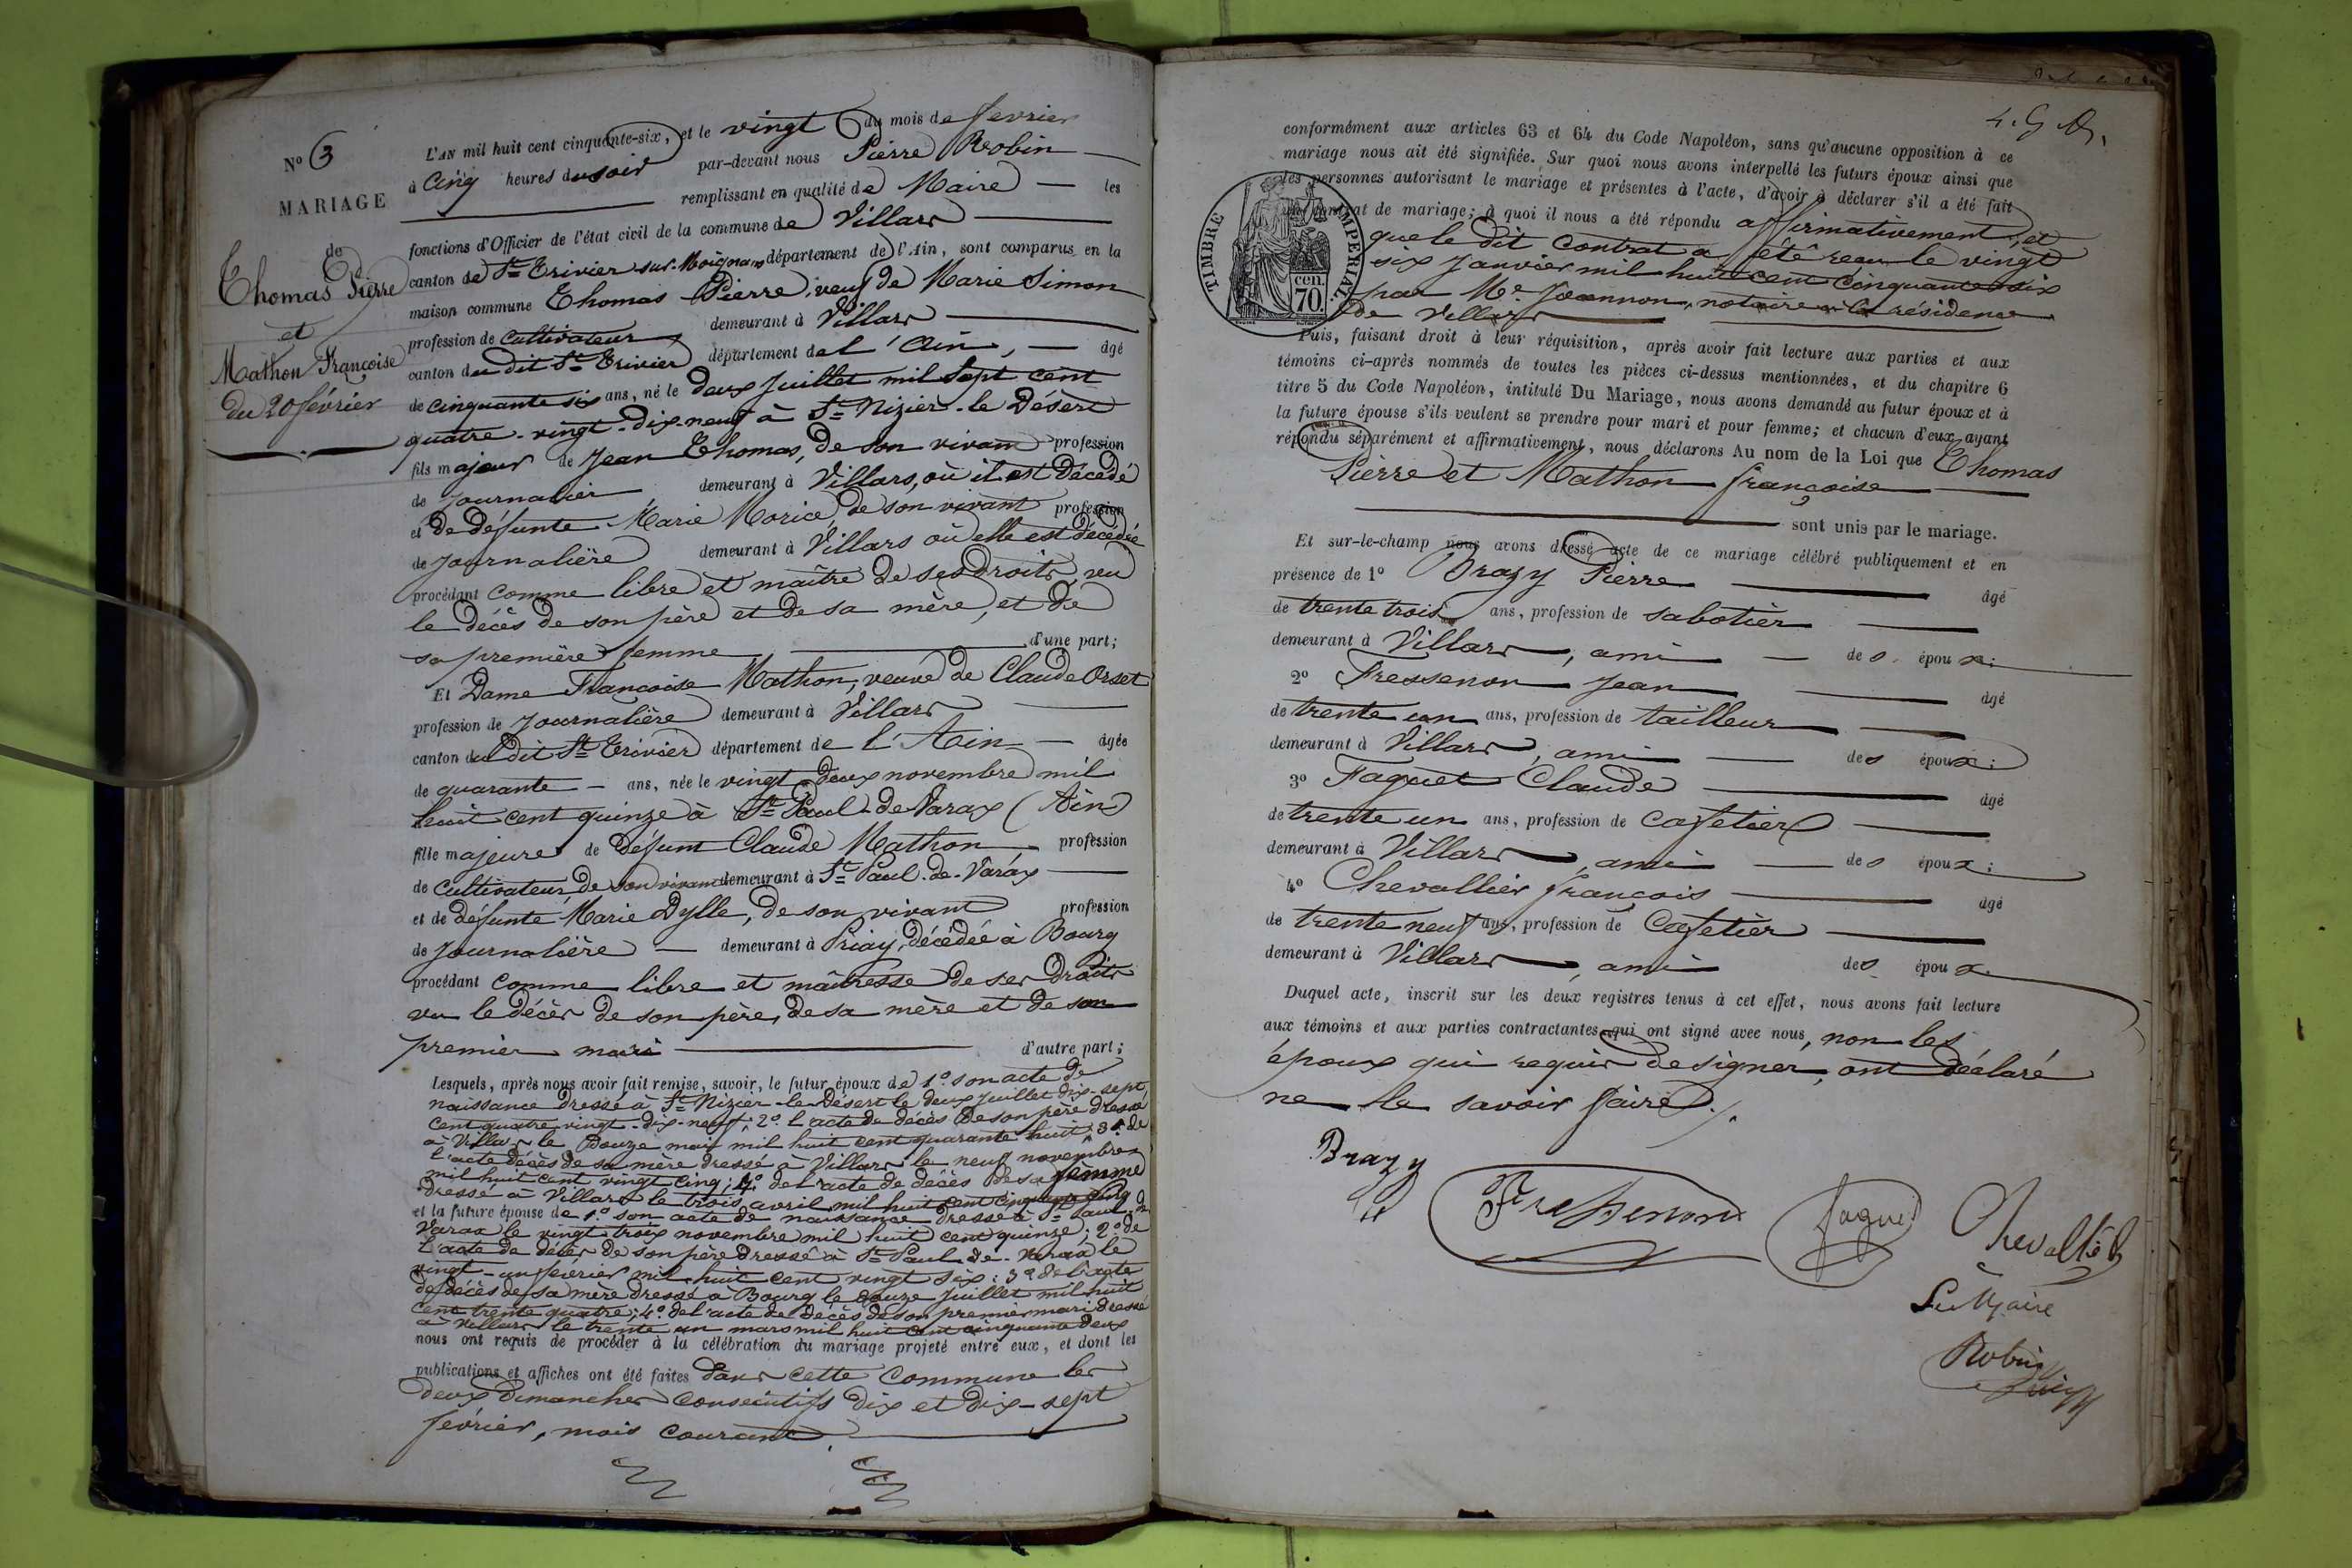 N° 3
MARIAGE
de
Thomas Pierre
et
Mathon Françoise
du 20 février
L'AN mil huit cent cinquante-six, et le vingt du mois de fevrier
à cinq heures du soir par-devant nous Pierre Robin
remplissant en qualité de Maire les
fonctions d'Officier de l'état civil de la commune de Villars
canton de St Trivier sur Moignans département de l'Ain, sont comparus en la
maison commune Thomas Pierre, veuf de Marie Simon
profession de cultivateur demeurant à Villars
canton du dit St Trivier département de l'Ain, âgé
de cinquante six ans, né le deux juillet mil sept cent
quatre-vingt-dix-neuf à St Nizier-le Désert
fils majeur de Jean Thomas, de son vivant profession
de journalier demeurant à Villars, où il est décédé
et de défunte Marie Morice, de son vivant profession
de journalière demeurant à Villars où elle est décédée
procédant comme libre et maître de ses droits, vu
le décès de son père et de sa mère, et de
sa première femme d'une part;
Et Dame Françoise Mathon, veuve de Claude Orset
profession de journalière demeurant à Villars
canton du dit St Trivier département de l'Ain âgée
de quarante ans, née le vingt-deux novembre mil
huit cent quinze à St Paul-de-Varax (Ain)
fille majeure de défunt Claude Mathon profession
de cultivateur de son vivant demeurant à St Paul-de-Varax
et de défunte Marie Dylle, de son vivant profession
de journalière demeurant à Priay, décédée à Bourg
procédant comme libre et maîtresse de ses droits
vu le décès de son père, de sa mère et de son
premier mari d'autre part;
Lesquels, après nous avoir fait remise, savoir, le futur époux de 1° son acte de
naissance dressé à St Nizier-le Désert le deux juillet dix-sept
cent quatre-vingt-dix-neuf; 2° l'acte de décès de son père dressé
à Villars le douze mai mil huit cent quarante huit; 3° de
l'acte décès de sa mère dressé à Villars le neuf novembre
mil huit cent vingt cinq; 4° de l'acte de décès de sa femme
dressé à Villars le trois avril mil huit cent cinquante cinq
et la future épouse de 1° son acte de naissance dressé à St Paul-de
Varax le vingt trois novembre mil huit cent quinze; 2° de
l'acte de décès de son père dressé à St Paul-de-Varax le
vingt-un février mil huit cent vingt six; 3° de l'acte
de décès de sa mère dressé à Bourg le douze juillet mil huit
cent trente quatre; 4° de l'acte de décès de son premier mari dressé
à Villars le trente un mars mil huit cent cinquante deux
nous ont requis de procéder à la célébration du mariage projeté entre eux, et dont les
publications et affiches ont été faites dans cette commune les
deux dimanches consécutifs dix et dix-sept
février, mois courant.
conformément aux articles 63 et 64 du Code Napoléon, sans qu'aucune opposition à ce
mariage nous ait été signifiée. Sur quoi nous avons interpellé les futurs époux ainsi que
les personnes autorisant le mariage et présentes à l'acte, d'avoir à déclarer s'il a été fait
un contrat de mariage; à quoi il nous a été répondu affirmativement, et
que le dit contrat a été reçu le vingt
six janvier mil huit cent cinquante six
par Me Joannon, notaire à la résidence
de Villars
TIMBRE IMPERIAL
cen. 70.
Puis, faisant droit à leur réquisition, après avoir fait lecture aux parties et aux
témoins ci-après nommés de toutes les pièces ci-dessus mentionnées, et du chapitre 6
titre 5 du Code Napoléon, intitulé Du Mariage, nous avons demandé au futur époux et à
la future épouse s'ils veulent se prendre pour mari et pour femme; et chacun d'eux ayant
répondu séparément et affirmativement, nous déclarons Au nom de la Loi que Thomas
Pierre et Mathon françoise
sont unis par le mariage.
Et sur-le-champ nous avons dressé acte de ce mariage célébré publiquement et en
présence de 1° Brazy Pierre âgé
de trente trois ans, profession de sabotier
demeurant à Villars, ami des époux;
2° Fressenon Jean âgé
de trente un ans, profession de tailleur
demeurant à Villars, ami des époux;
3° Faguet Claude âgé
de trente un ans, profession de cafetier
demeurant à Villars, ami des époux;
4° Chevallier françois âgé
de trente neuf ans, profession de cafetier
demeurant à Villars, ami des époux
Duquel acte, inscrit sur les deux registres tenus à cet effet, nous avons fait lecture
aux témoins et aux parties contractantes qui ont signé avec nous, non les
époux qui requis de signer, ont déclaré
ne le savoir faire.
Brazy
Fressenon
faguet
Chevallier
Le Maire
Robin